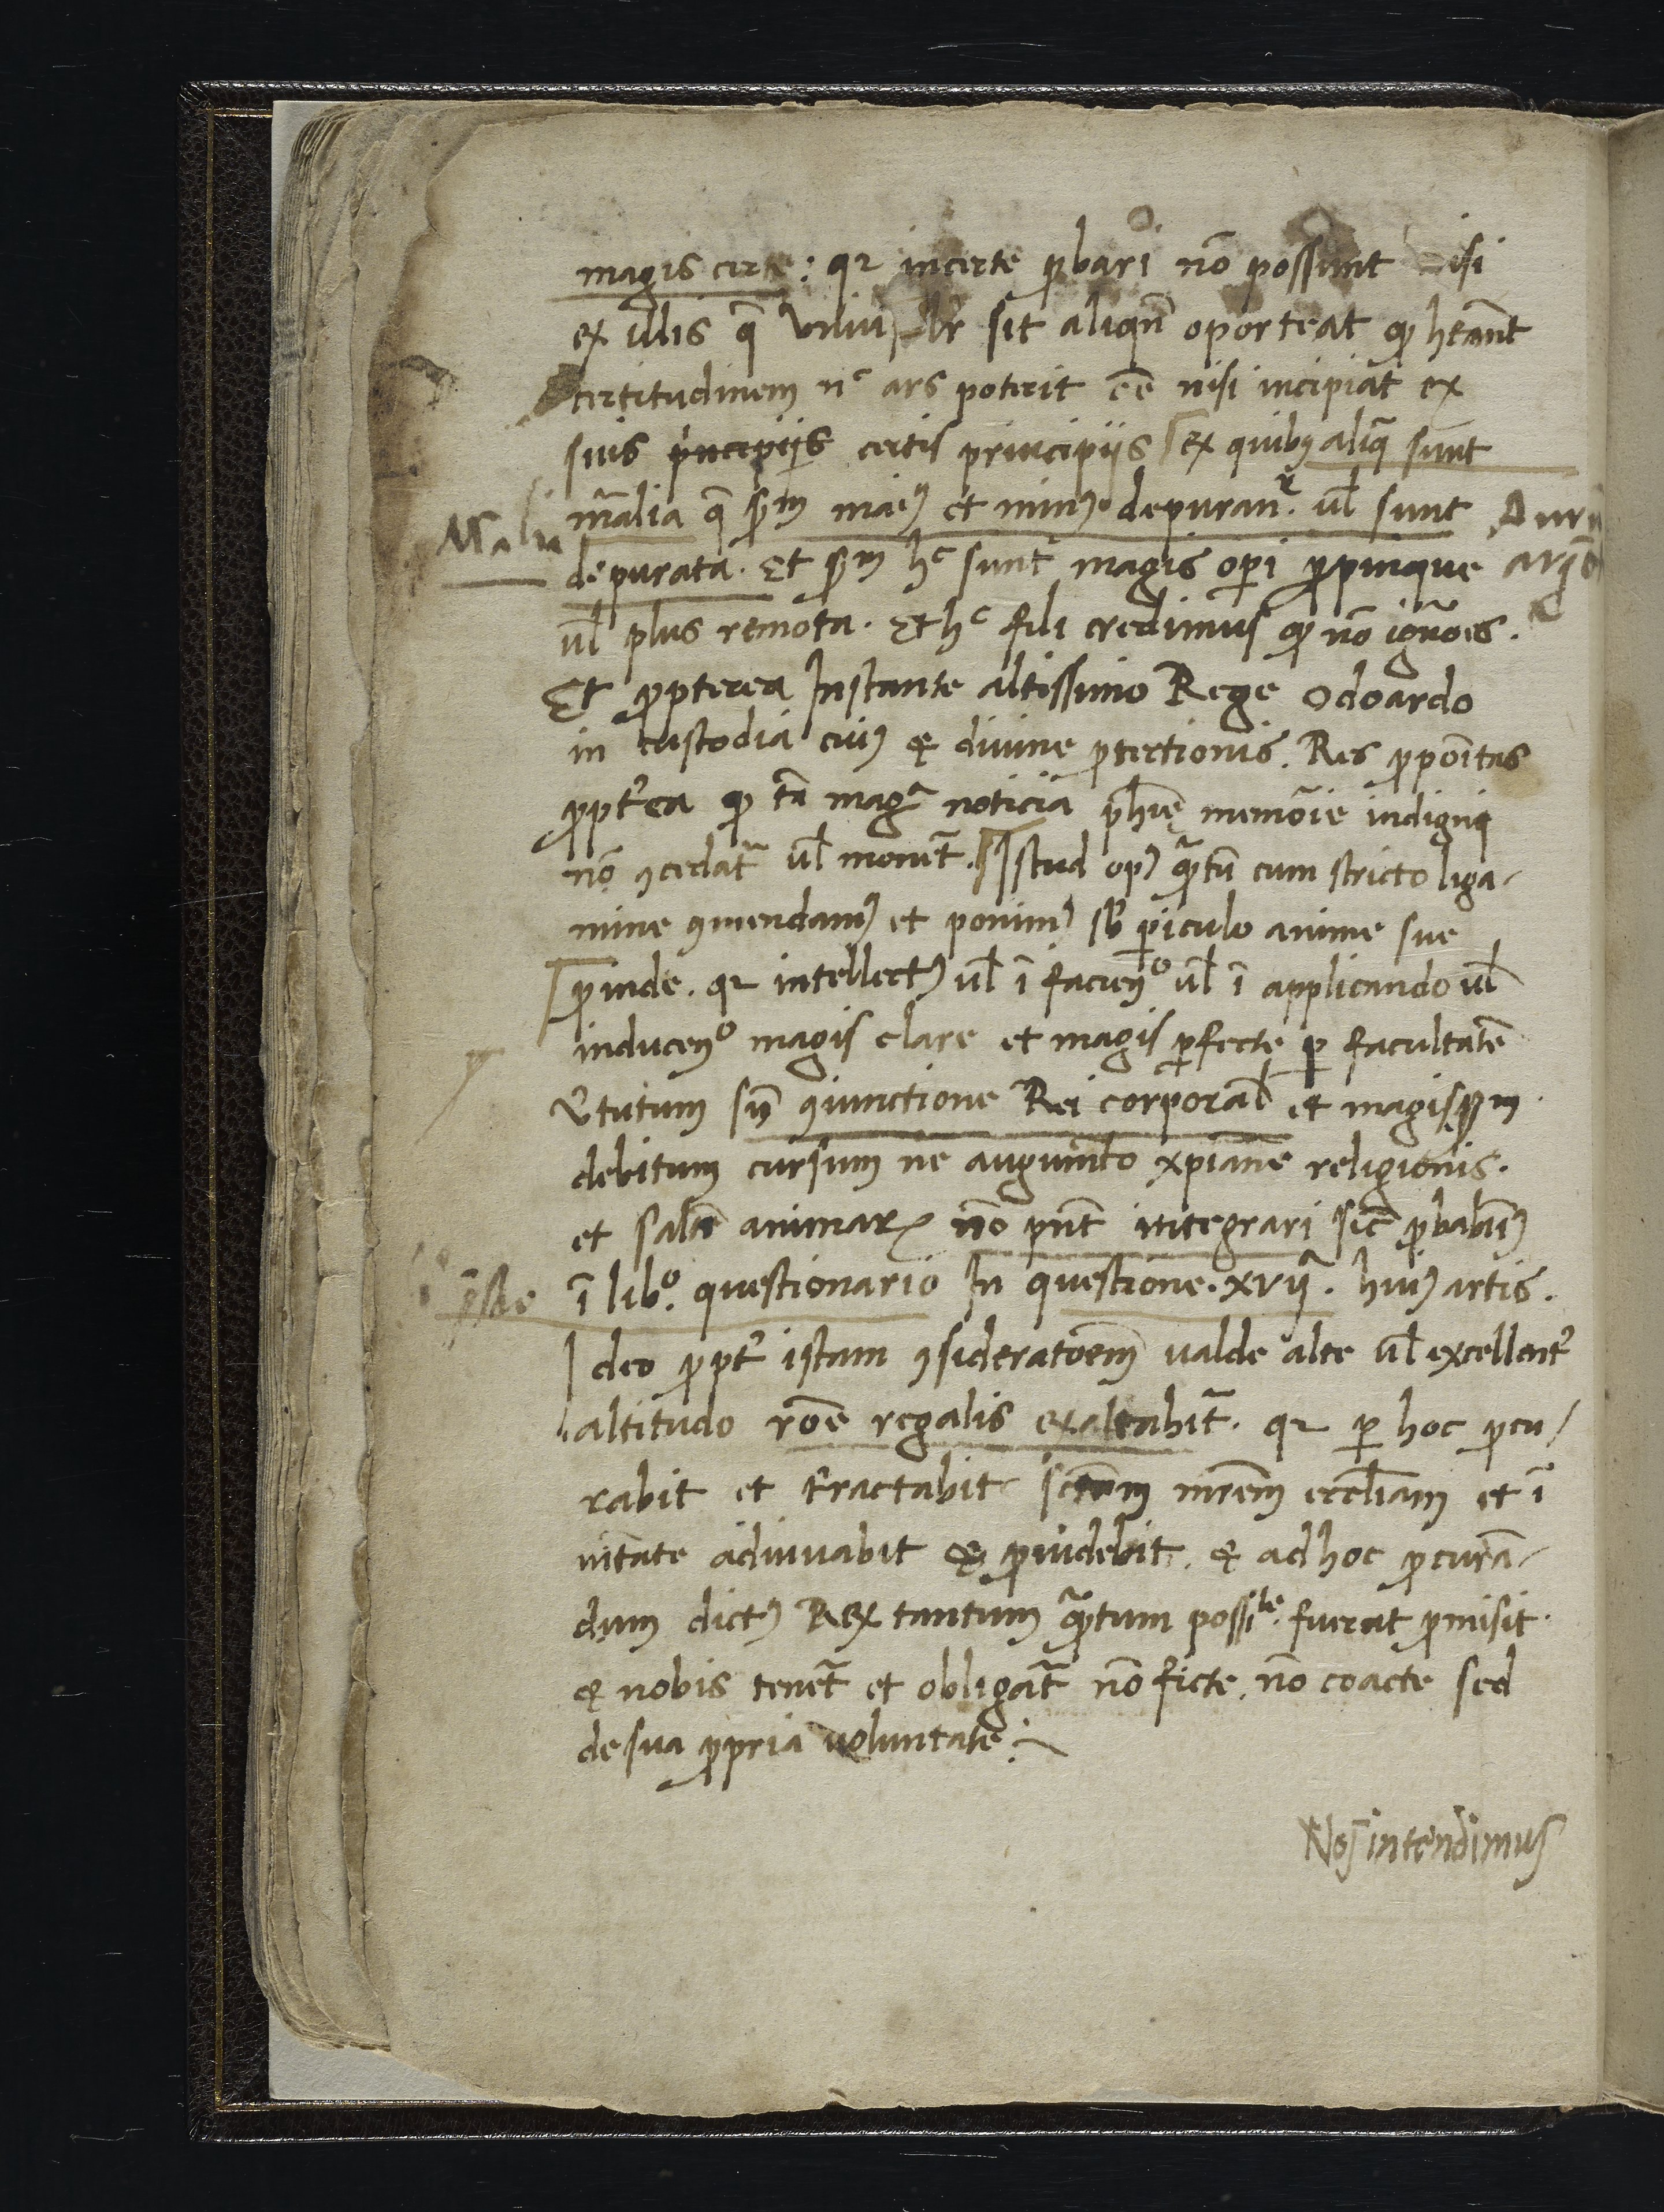 magis certe: qꝛ incerte ꝓbari nō possunt nisi
ex illis q̄ uniu͛slīr sit aliqn̄ oporteat ꝙ hēant
certitudinem nᶜ ars poterit ēē nisi incipiat ex
suis p̍ncipijs certis principijs ex quibꝫ aliq̄ sunt
mr̄alia q̄ ẜm maiꝰ et minꝰ depuran̄ᵗ ul̄ sunt
depurata. Et ẜm hᶜ sunt magis oꝑi ꝓpinque
ul̄ plus remota. Et hᶜ fili credimus ꝙ nō ignōēs.
Et ꝓpterea Instante altissimo Rege Odoardo
in custodia eiuꝰ & diuine ꝓtectionis. Res ꝓpoītas
ꝓpt̄ea ꝙ tā mag̃ noticia ph̄ię memōīe indigniꝗ
nō ꝯcedat᷑ ul̄ monēt. Istud opꝰ qᷓtū cum stricto liga-
mine ꝯmendamꝰ et ponimꝰ sb̄ ꝑiculo anime sue
ꝓinde. qꝛ intellectꝰ ul̄ ī facienº ul̄ ī applicando ul̄
inducenº magis clare et magis ꝑfecte ꝑ facultatē
v͛tutum sū ꝯiunctione Rei corporal̄ et magis ẜm
debitum cursum ne augumēto xp̄iane religionis.
et salt̄e animarꝝ nō pn̄t integrari sic̄ ꝓbabimꝰ
ī libº. questionario In questione. xvijª. huiꝰ artis.
Ideo ꝓpt̄ istam ꝯsideratōem̄ ualde alte ul̄ excellent᷑
altitudo rōe regalis exaltabit᷑. qꝛ ꝑ hoc ꝓcu-
rabit et tractabit sct̄am mr̄em eccl̄iam et ī
uītate adiuuabit & ꝓuidebit. & ad hoc ꝓcurā-
dum dictꝰ Rex tantum qᷓtum possiᵇˡᵉ. fuerat ꝓmisit.
& nobis tenet᷑ et obligat᷑ nō ficte. nō coacte sed
de sua ꝓpria uoluntate:~
Nos intendimus